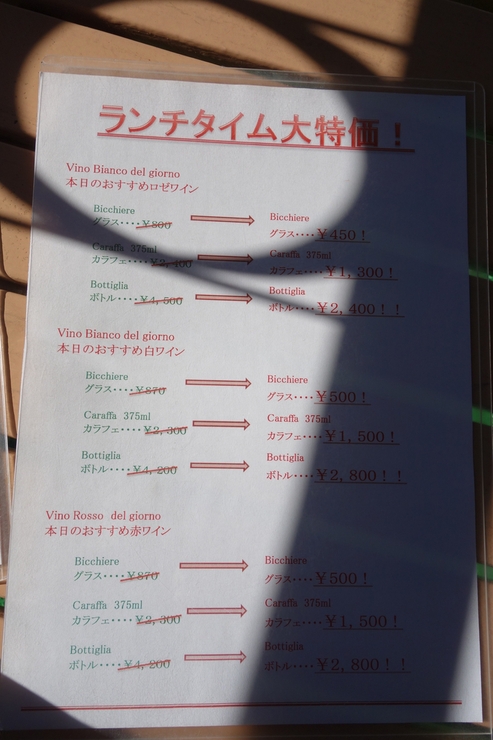 ランチタイム大特価！
Vino Bianco del giorno
本日のおすすめロゼワイン
Bicchiere
グラス････￥800
Bicchiere
グラス････￥450！
Caraffa 375ml
カラフェ････￥2,400
Caraffa 375ml
カラフェ････￥1,300！
Bottiglia
ボトル････￥4,500
Bottiglia
ボトル････￥2,400！！
Vino Bianco del giorno
本日のおすすめ白ワイン
Bicchiere
グラス････￥870
Bicchiere
グラス････￥500！
Caraffa 375ml
カラフェ････￥2,300
Caraffa 375ml
カラフェ････￥1,500！
Bottiglia
ボトル････￥4,200
Bottiglia
ボトル････￥2,800！！
Vino Rosso del giorno
本日のおすすめ赤ワイン
Bicchiere
グラス････￥870
Bicchiere
グラス････￥500！
Caraffa 375ml
カラフェ････￥2,300
Caraffa 375ml
カラフェ････￥1,500！
Bottiglia
ボトル････￥4,200
Bottiglia
ボトル････￥2,800！！